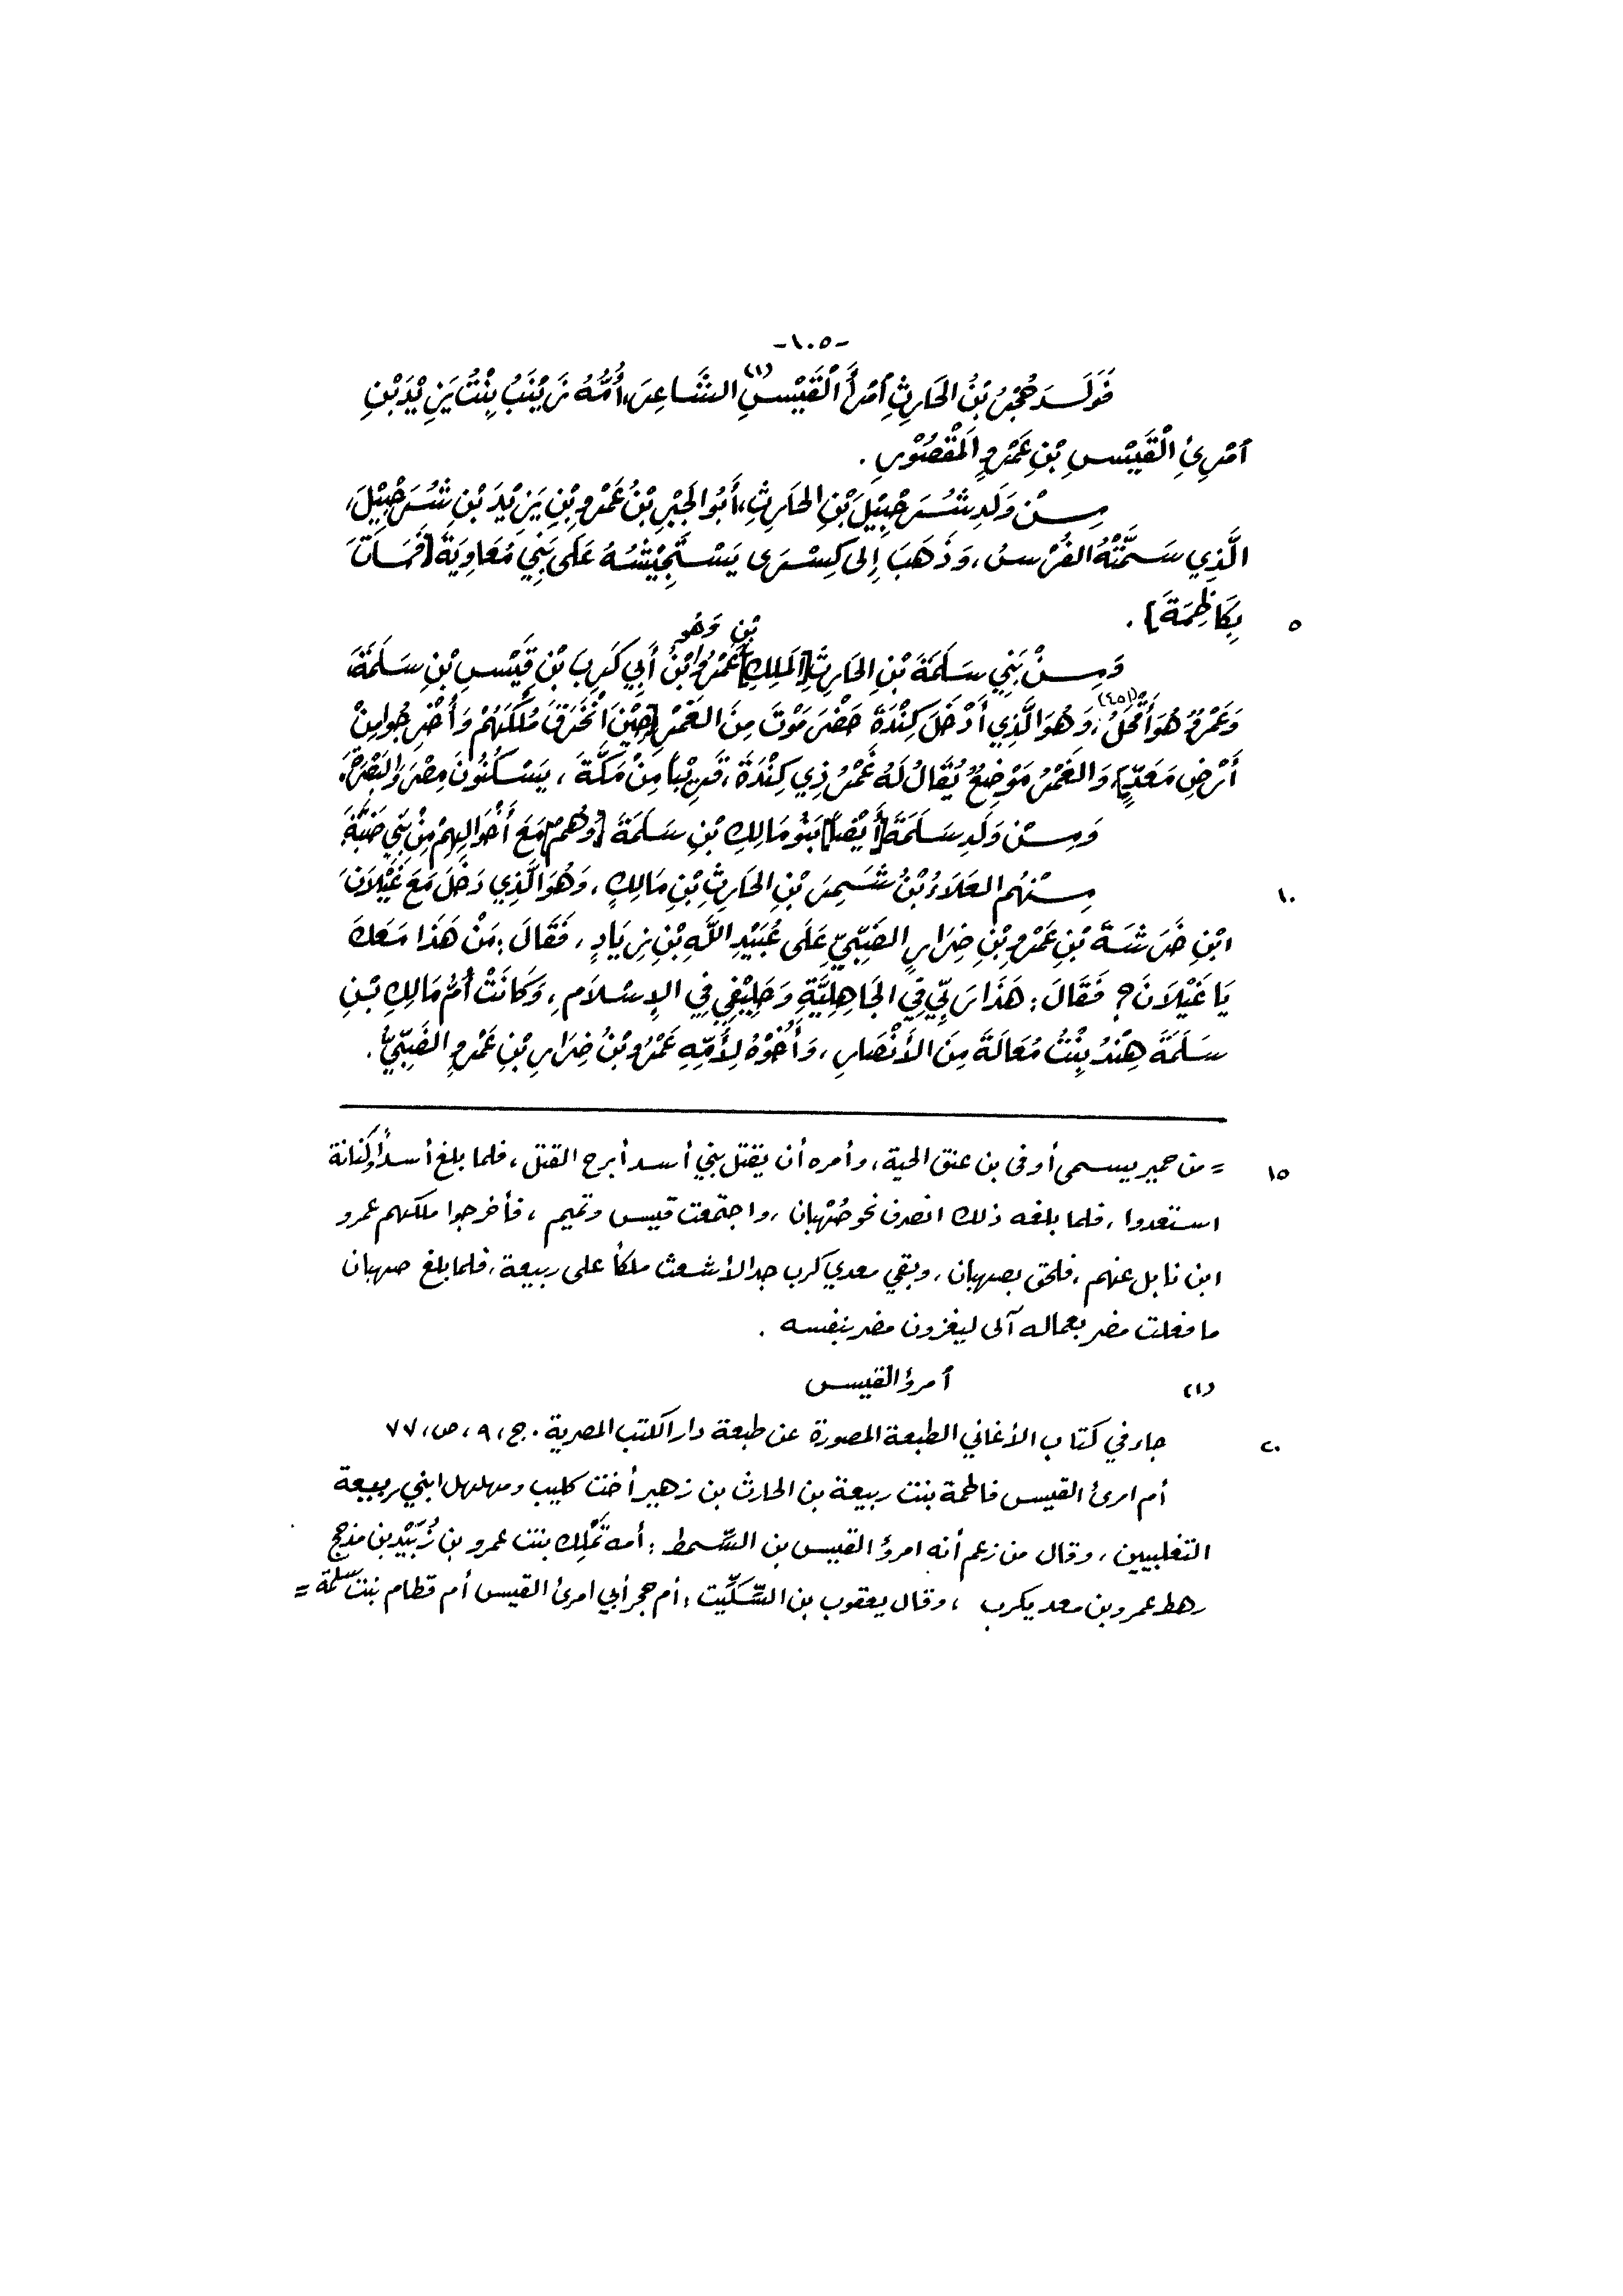 -١٠٥-
فَوَلَدَ حُجْرُ بْنُ الحَارِثِ امْرَأَ الْقَيْسِ (١) الشَّاعِرَ، أُمُّهُ زَيْنَبُ بِنْتُ يَزِيْدَ بْنِ
امْرِئِ الْقَيْسِ بْنِ عَمْرٍو المَقْصُوْرِ .
مِنْ وَلَدِ شُرَحْبِيْلَ بْنِ الحَارِثِ، أَبُو الجَبْرِ بْنُ عَمْرِو بْنِ يَزِيْدَ بْنِ شُرَحْبِيْلَ،
الَّذِي سَمَّتْهُ الفُرْسُ، وَذَهَبَ إِلى كِسْرَى يَسْتَجِيْشُهُ عَلَى بَنِي مُعَاوِيَةَ [فَمَاتَ
٥ بِكَاظِمَةَ] .
بْنِ وَهُوَ
وَمِنْ بَنِي سَلَمَةَ بْنِ الحَارِثِ [المَلِكِ] عَمْرُو ابْنُ أَبِي كَرِبَ بْنِ قَيْسِ بْنِ سَلَمَةَ،
وَعَمْرٌو هُوَ أَمْحَلُ (٤٥١)، وَهُوَ الَّذِي أَدْخَلَ كِنْدَةَ حَضْرَمَوْتَ مِنَ الغَمْرِ [حِيْنَ انْخَرَقَ مُلْكُهُمْ وَأُخْرِجُوا مِنْ
أَرْضِ مَعَدٍّ]، وَالغَمْرُ مَوْضِعٌ يُقَالُ لَهُ غَمْرُ ذِي كِنْدَةَ، قَرِيْباً مِنْ مَكَّةَ، يَسْكُنُونَ مِصْرَ وَالبَصْرَةَ.
وَمِنْ وَلَدِ سَلَمَةَ [أَيْضاً] بَنُو مَالِكِ بْنِ سَلَمَةَ [وَهُمْ] مَعَ أَخْوَالِهِمْ مِنْ بَنِي ضَبَّةَ.
١٠ مِنْهُم العَلَاءُ بْنُ شَمِرَ بْنِ الحَارِثِ بْنِ مَالِكٍ، وَهُوَ الَّذِي دَخَلَ مَعَ غَيْلَانَ
ابْنِ خَرَشَةَ بْنِ عَمْرِو بْنِ ضِرَارٍ الضَبِّيِّ عَلَى عُبَيْدِ اللَّهِ بْنِ زِيَادٍ، فَقَالَ: مَنْ هَذَا مَعَكَ
يَا غَيْلَانَ؟ فَقَالَ: هَذَا رَبِّي فِي الجَاهِلِيَّةِ وَحَلِيْفِي فِي الإِسْلَامِ، وَكَانَتْ أُمُّ مَالِكِ بْنِ
سَلَمَةَ هِنْدُ بِنْتُ مُعَالَةَ مِنَ الأَنْصَارِ، وَأَخُوْهُ لِأُمِّهِ عَمْرُو بْنُ ضِرَارِ بْنِ عَمْرٍو الضَبِّيُّ.
١٥ = من حمير يسمى أوفى بن عنق الحية، وأمره أن يقتل بني أسد أبرح القتل، فلما بلغ أسداً وكنانة
استعدوا، فلما بلغه ذلك انصرف نحو صُهْبان، واجتمعت قيس وتميم، فأخرجوا ملكهم عمرو
ابن نابل عنهم، فلحق بصهبان، وبقي معدي كرب جد الأشعث ملكاً على ربيعة، فلما بلغ صهبان
ما فعلت مضر بعماله آلى ليغزون مضر بنفسه .
(١) امرؤ القيس
٢٠ جاء في كتاب الأغاني الطبعة المصورة عن طبعة دار الكتب المصرية . ج، ٩، ص، ٧٧
أم امرئ القيس فاطمة بنت ربيعة بن الحارث بن زهير أخت كليب ومهلهل ابني ربيعة
التغلبيين، وقال من زعم أنه امرؤ القيس بن السِّمط: أمه تَمْلِك بنت عمرو بن زُبَيْد بن مذحج
رهط عمرو بن معد يكرب ، وقال يعقوب بن السِّكِّيت: أم حجر أبي امرئ القيس أم قطام بنت سلمة =